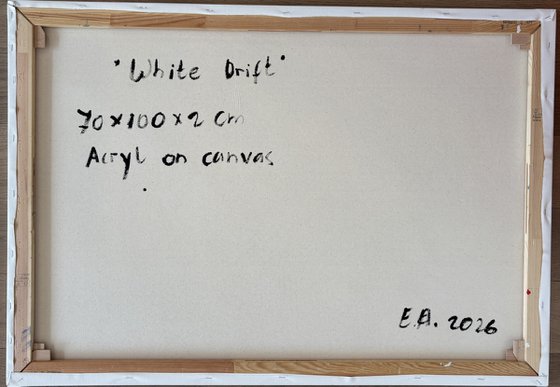 "White Drift"
70x100x2 cm
Acryl on canvas
E.A. 2026